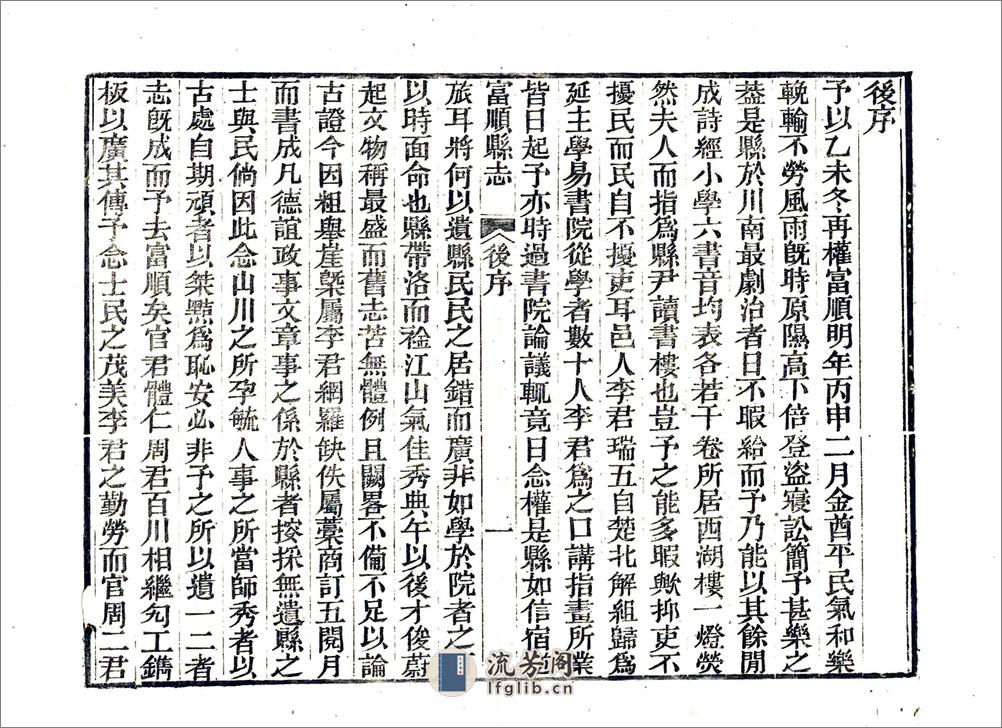 後序
予以乙未冬再權富順明年丙申二月金酋平民氣和樂
輓輸不勞風雨旣時原隰高下倍登盜寢訟簡予甚樂之
葢是縣於川南最劇治者日不暇給而予乃能以其餘閒
成詩經小學六書音均表各若干卷所居西湖樓一燈熒
然夫人而指爲縣尹讀書樓也豈予之能多暇歟抑吏不
擾民而民自不擾吏耳邑人李君瑞五自楚北解組歸爲
延主學易書院從學者數十人李君爲之口講指畫所業
皆日起予亦時過書院論議輒竟日念權是縣如信宿逆
富順縣志 後序 一
旅耳將何以遺縣民民之居錯而廣非如學於院者之可
以時面命也縣帶洛而襟江山氣佳秀典午以後才俊蔚
起文物稱最盛而舊志苦無體例且闕畧不僃不足以論
古證今因粗舉崖㮣屬李君網羅缺佚屬藁商訂五閱月
而書成凡德誼政事文章事之係於縣者搜採無遺縣之
士與民倘因此念山川之所孕毓人事之所當師秀者以
古處自期頑者以桀黠爲恥安必非予之所以遺一二者
志旣成而予去富順矣官君體仁周君百川相繼勼工鐫
板以廣其傳予念士民之茂美李君之勤勞而官周二君
流芳阁
lfglib.cn